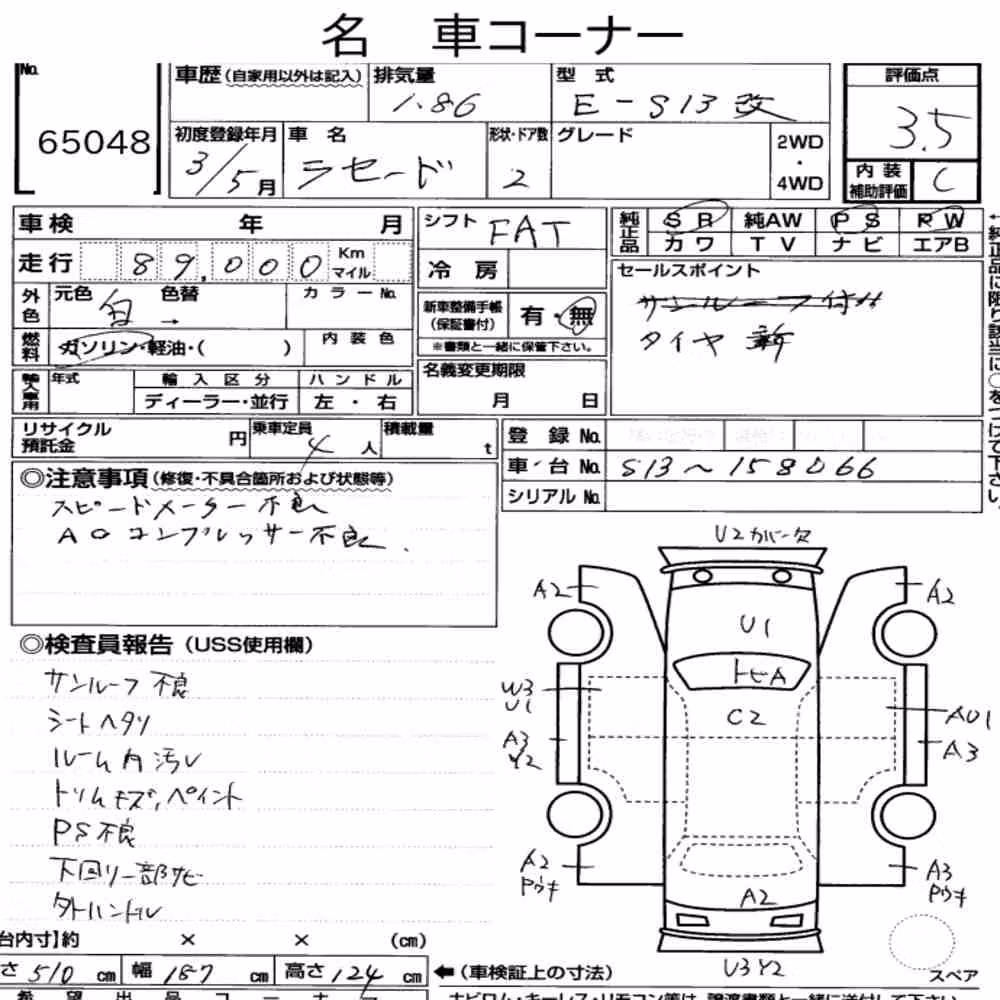 名 車コーナー
No.
65048
車歴(自家用以外は記入)
排気量
1.86
型 式
E-S13改
評価点
3.5
初度登録年月
3/5月
車 名
ラセード
形状・ドア数
2
グレード
2WD
・
4WD
内装
補助評価
C
車検 年 月
走行 89,000 Km マイル
シフト
FAT
冷 房
純正品
SR 純AW PS RW
カワ TV ナビ エアB
セールスポイント
サンルーフ付!!
タイヤ 新
外色
元色 色替
白 →
カラーNo.
燃料
ガソリン・軽油・( )
内装色
新車整備手帳
(保証書付)
有・無
※書類と一緒に保管下さい。
輸入車用
年式
輸入区分
ディーラー・並行
ハンドル
左・右
名義変更期限
月 日
リサイクル
預託金
円
乗車定員
4人
積載量
t
登録 No.
車・台 No. S13~158066
シリアル No.
◎注意事項(修復・不具合箇所および状態等)
スピードメーター不良
ACコンプレッサー不良.
◎検査員報告(USS使用欄)
サンルーフ不良
シートヘタリ
ルーム内汚レ
トリムキズ,ペイント
PS不良
下回リ一部サビ
外ハンドル
U2カバー欠
A2
A2
U1
トビA
C2
W3
U1
A3
Y2
AU1
A3
A2
Pウキ
A3
Pウキ
A2
U3Y2
スペア
台内寸】約 × × (cm)
さ 510 cm 幅 187 cm 高さ 124 cm
←(車検証上の寸法)
希望出品コーナー
ナビロム・キーレス・リモコン等は、譲渡書類と一緒に送付して下さい
←純正品に限り該当に○をつけて下さい。